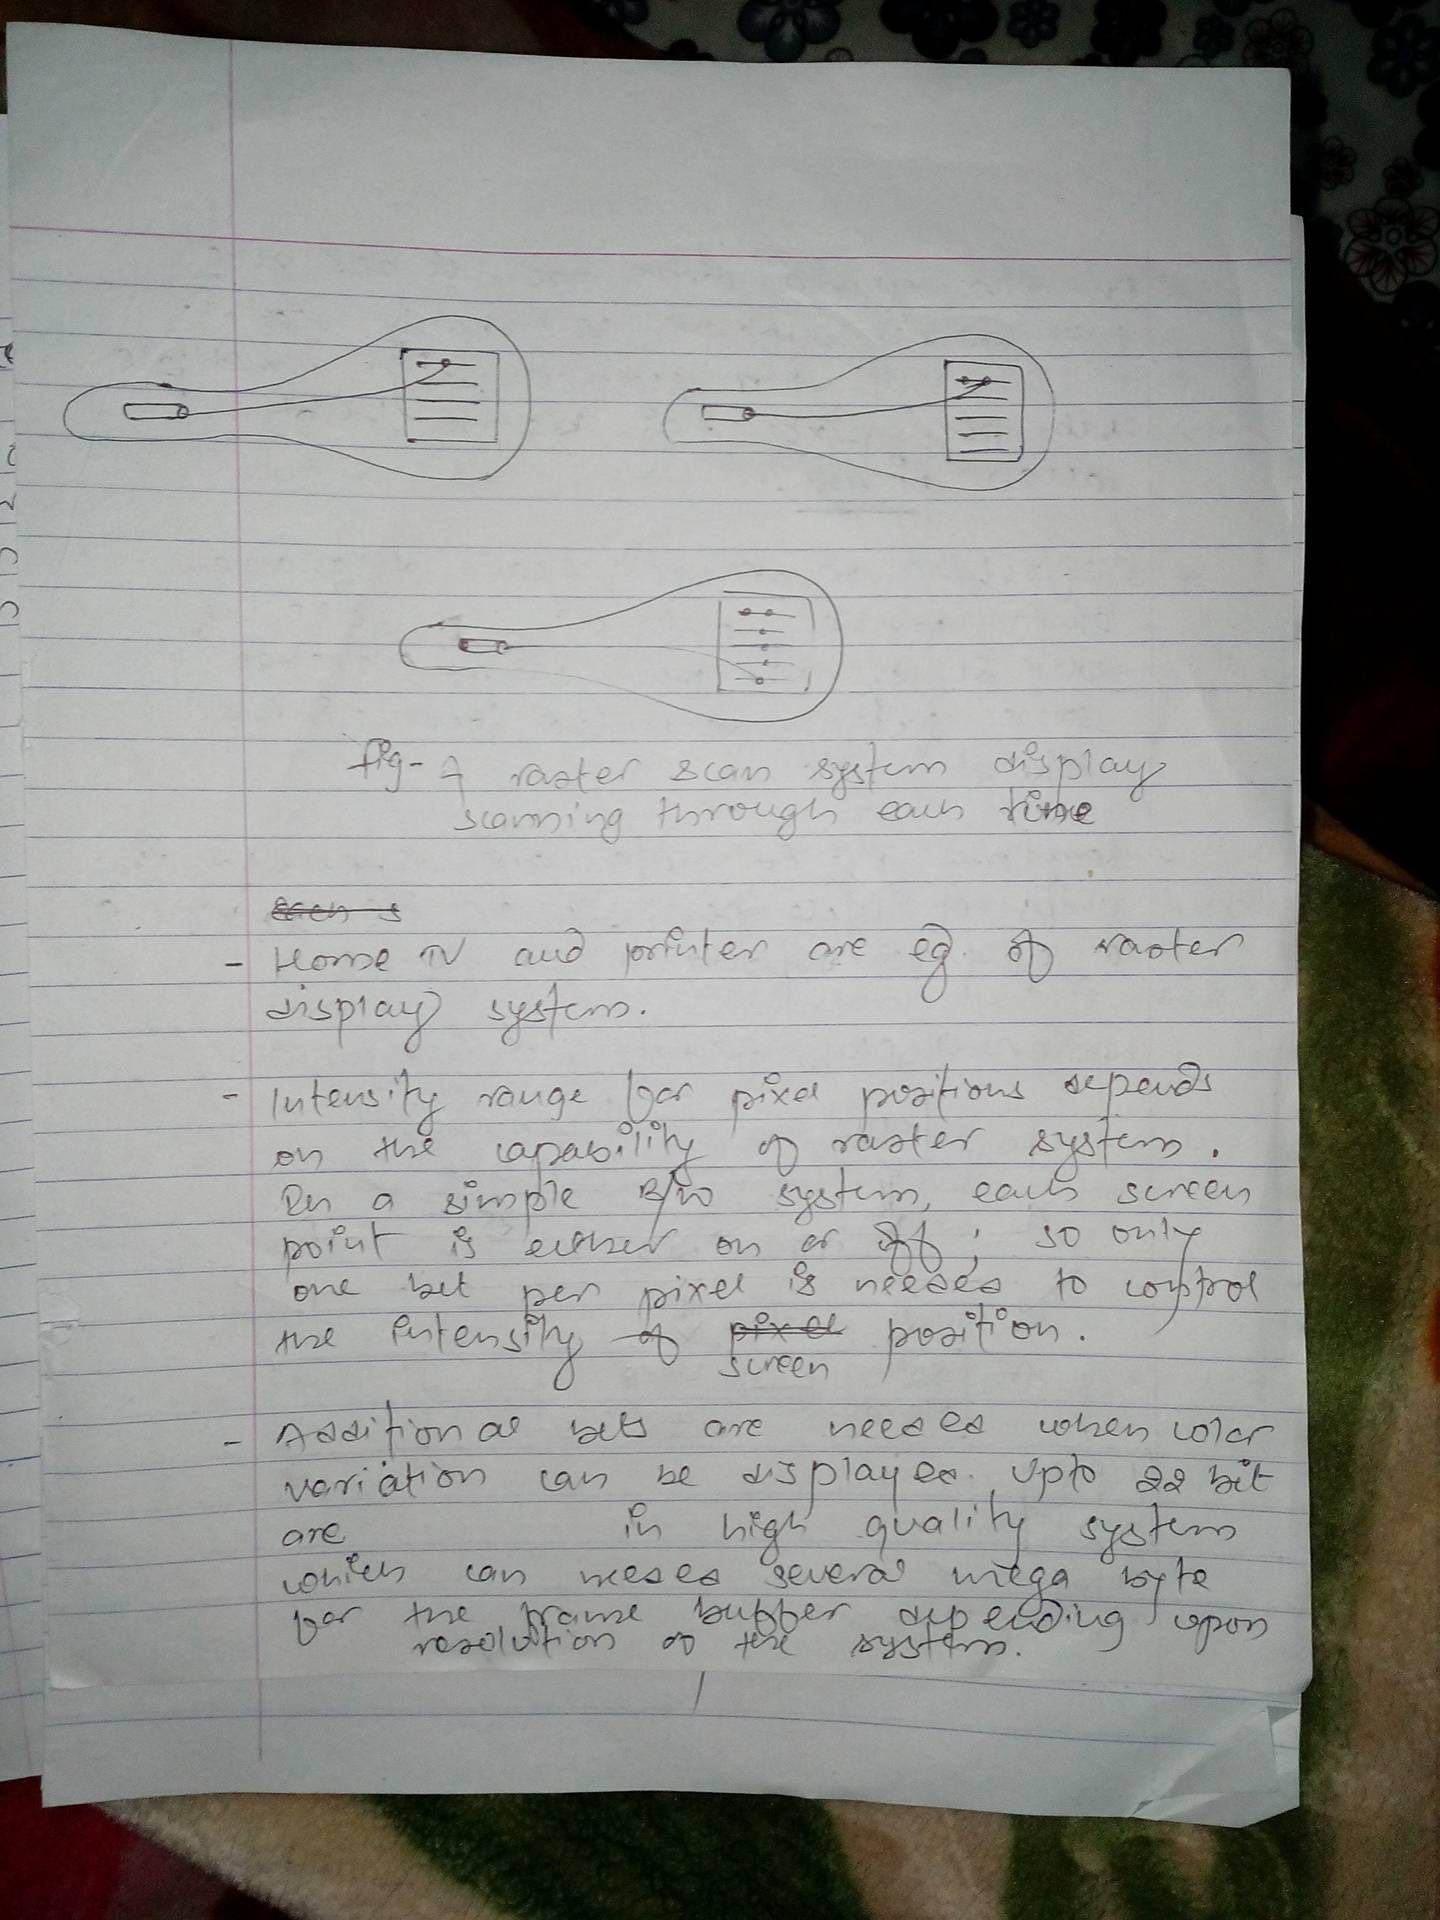 fig- A raster scan system display
scanning through each time
- Home TV and printer are eg. of raster
display system.
- Intensity range for pixel positions depends
on the capability of raster system.
In a simple B/W system, each screen
point is either on or off; so only
one bit per pixel is needed to control
the intensity of pixel position.
screen
- Additional bits are needed when color
variation can be displayed. Upto 22 bit
are in high quality system
which can needed several mega byte
for the frame buffer depending upon
resolution of the system.